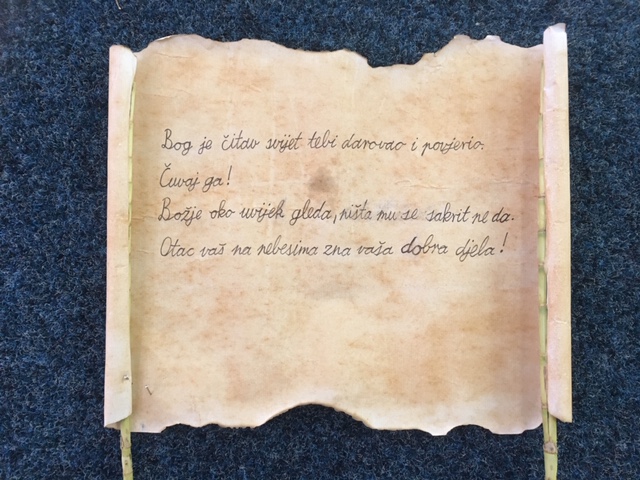 Bog je čitav svijet tebi darovao i povjerio.
Čuvaj ga!
Božje oko uvijek gleda, ništa mu se sakrit ne da.
Otac vaš na nebesima zna vaša dobra djela!